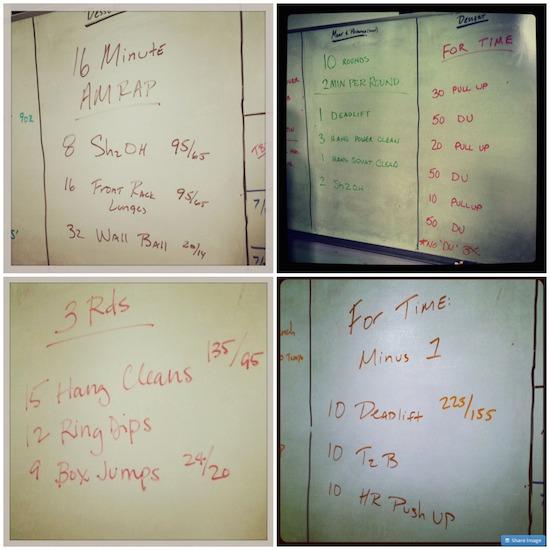 Dessert
16 Minute
AMRAP
8 Sh2OH 95/65
16 Front Rack 95/65
Lunges
32 Wall Ball 20/14
902
5'
7/
Dessert
FOR TIME
10 ROUNDS
2 MIN PER ROUND
1 DEADLIFT
3 HANG POWER CLEAN
1 HANG SQUAT CLEAN
2 Sh2OH
30 PULL UP
50 DU
20 PULL UP
50 DU
10 PULLUP
50 DU
*NO 'DU' 3X
3 Rds
15 Hang Cleans 135/95
12 Ring Dips
9 Box Jumps 24/20
For Time:
Minus 1
10 Deadlift 225/155
10 T2B
10 HR Push Up
Share Image